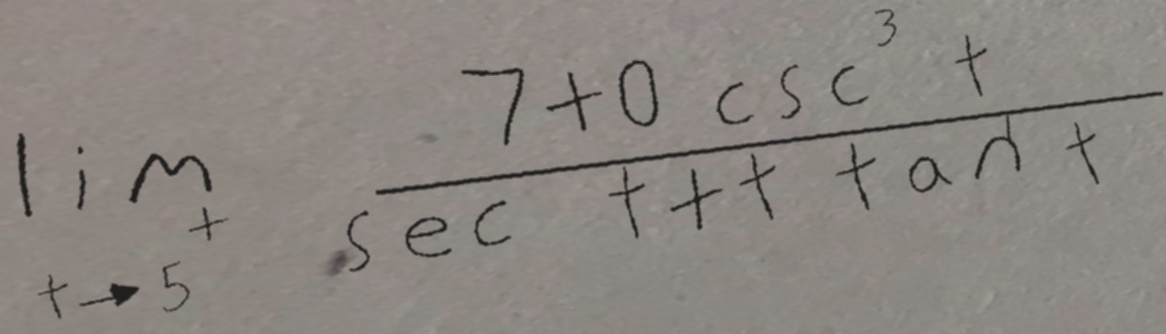 lim t→5⁺ (7+0 csc³ t)/(sec t+t tan t)